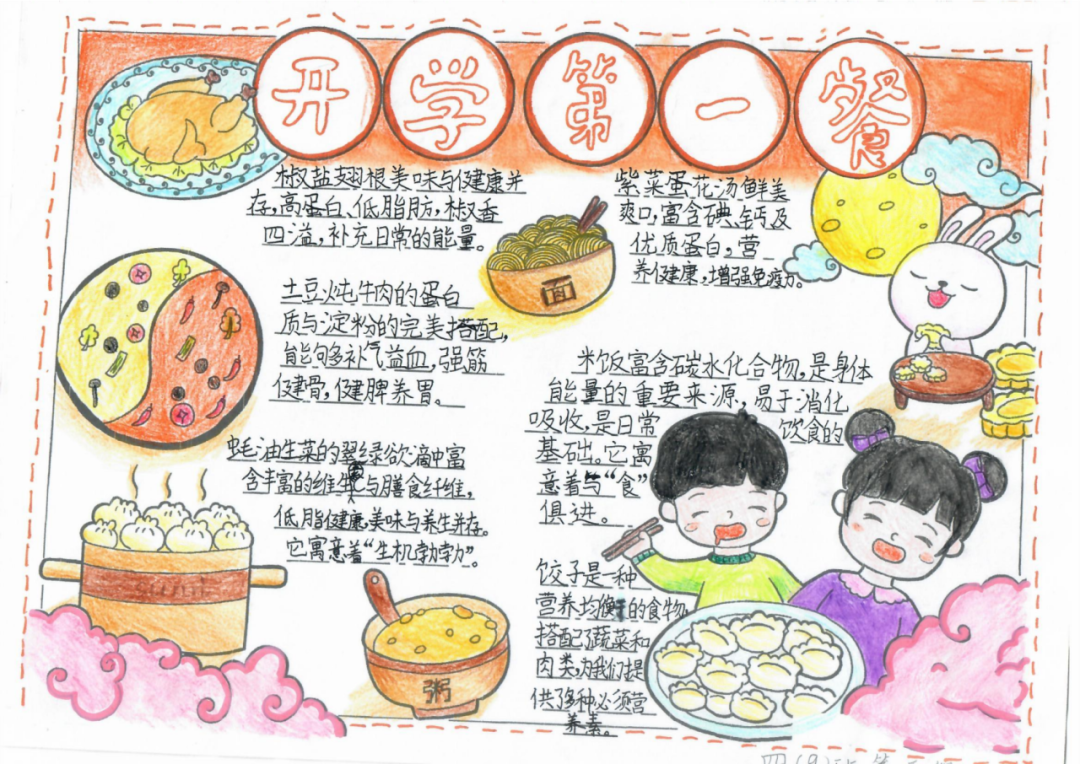 开学第一餐
椒盐翅根美味与健康并
存,高蛋白、低脂肪,椒香
四溢,补充日常的能量。
紫菜蛋花汤鲜美
爽口,富含碘、钙及
优质蛋白,营
养健康,增强免疫力。
面
土豆炖牛肉的蛋白
质与淀粉的完美搭配,
能够补气益血,强筋
健骨,健脾养胃。
米饭富含碳水化合物,是身体
能量的重要来源,易于消化
吸收,是日常饮食的
基础。它寓
意着与“食”
俱进。
蚝油生菜的翠绿欲滴中富
含丰富的维生素与膳食纤维,
低脂健康,美味与养生并存。
它寓意着“生机勃勃”。
饺子是一种
营养均衡的食物,
搭配了蔬菜和
肉类,为我们提
供了多种必须营
养素。
粥
四(9)班